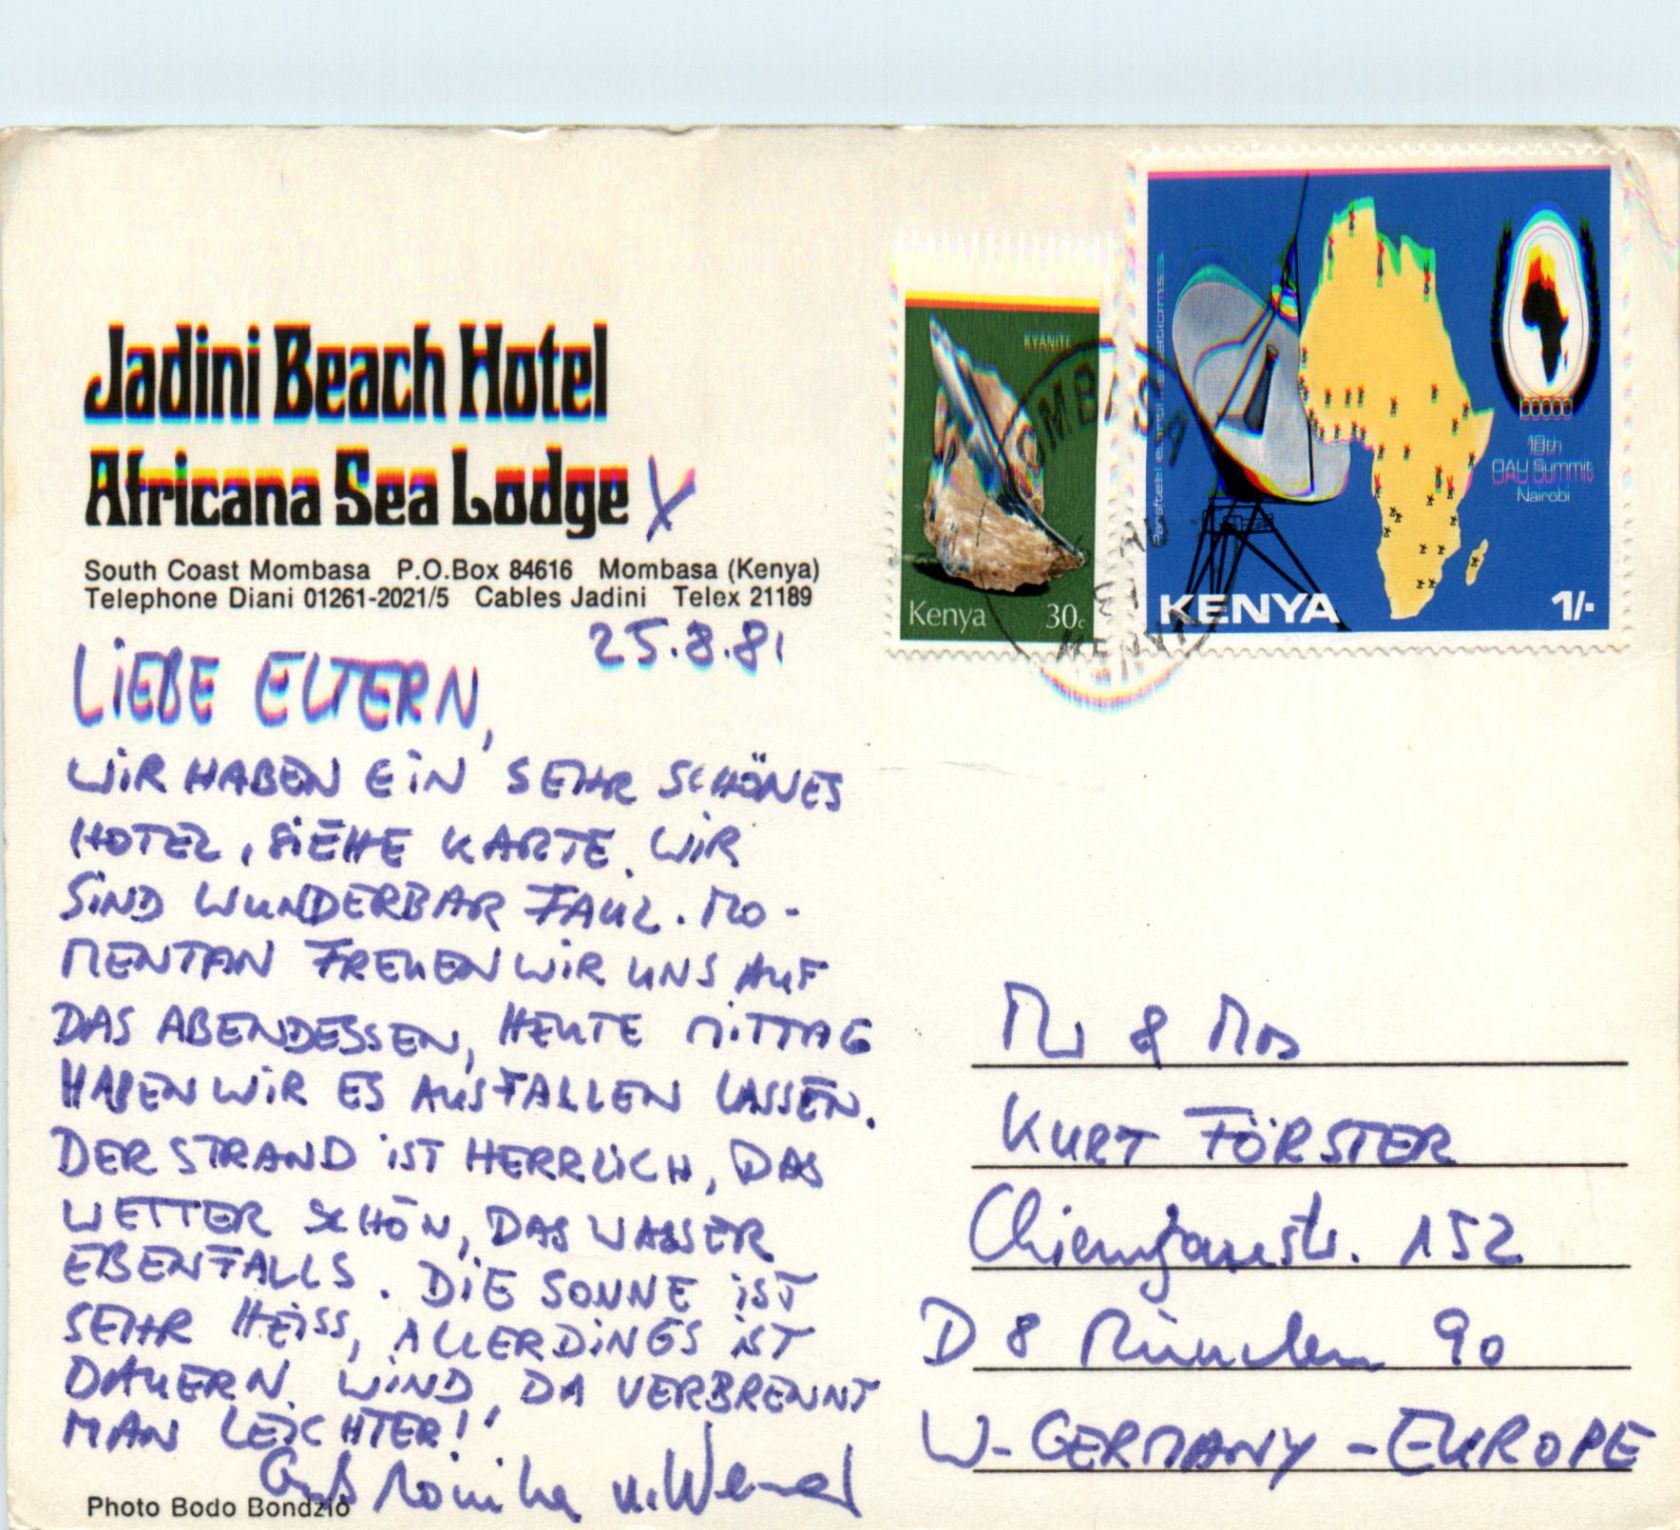 Jadini Beach Hotel
Africana Sea Lodge X
South Coast Mombasa P.O.Box 84616 Mombasa (Kenya)
Telephone Diani 01261-2021/5 Cables Jadini Telex 21189
25.8.81
LIEBE ELTERN,
WIR HABEN EIN SEHR SCHÖNES
HOTEL, SIEHE KARTE. WIR
SIND WUNDERBAR FAUL. MO-
MENTAN FREUEN WIR UNS AUF
DAS ABENDESSEN, HEUTE MITTAG
HABEN WIR ES AUSFALLEN LASSEN.
DER STRAND IST HERRLICH, DAS
WETTER SCHÖN, DAS WASSER
EBENFALLS. DIE SONNE IST
SEHR HEISS, ALLERDINGS IST
DAUERND WIND, DA VERBRENNT
MAN LEICHTER!
Monika u. Wend
Photo Bodo Bondzio
KYANITE
Kenya 30c
MOMBASA
KENYA
18th
OAU Summit
Nairobi
KENYA 1/-
Mr & Mrs
KURT FÖRSTER
Chiemgaustr. 152
D 8 München 90
W-GERMANY - EUROPE